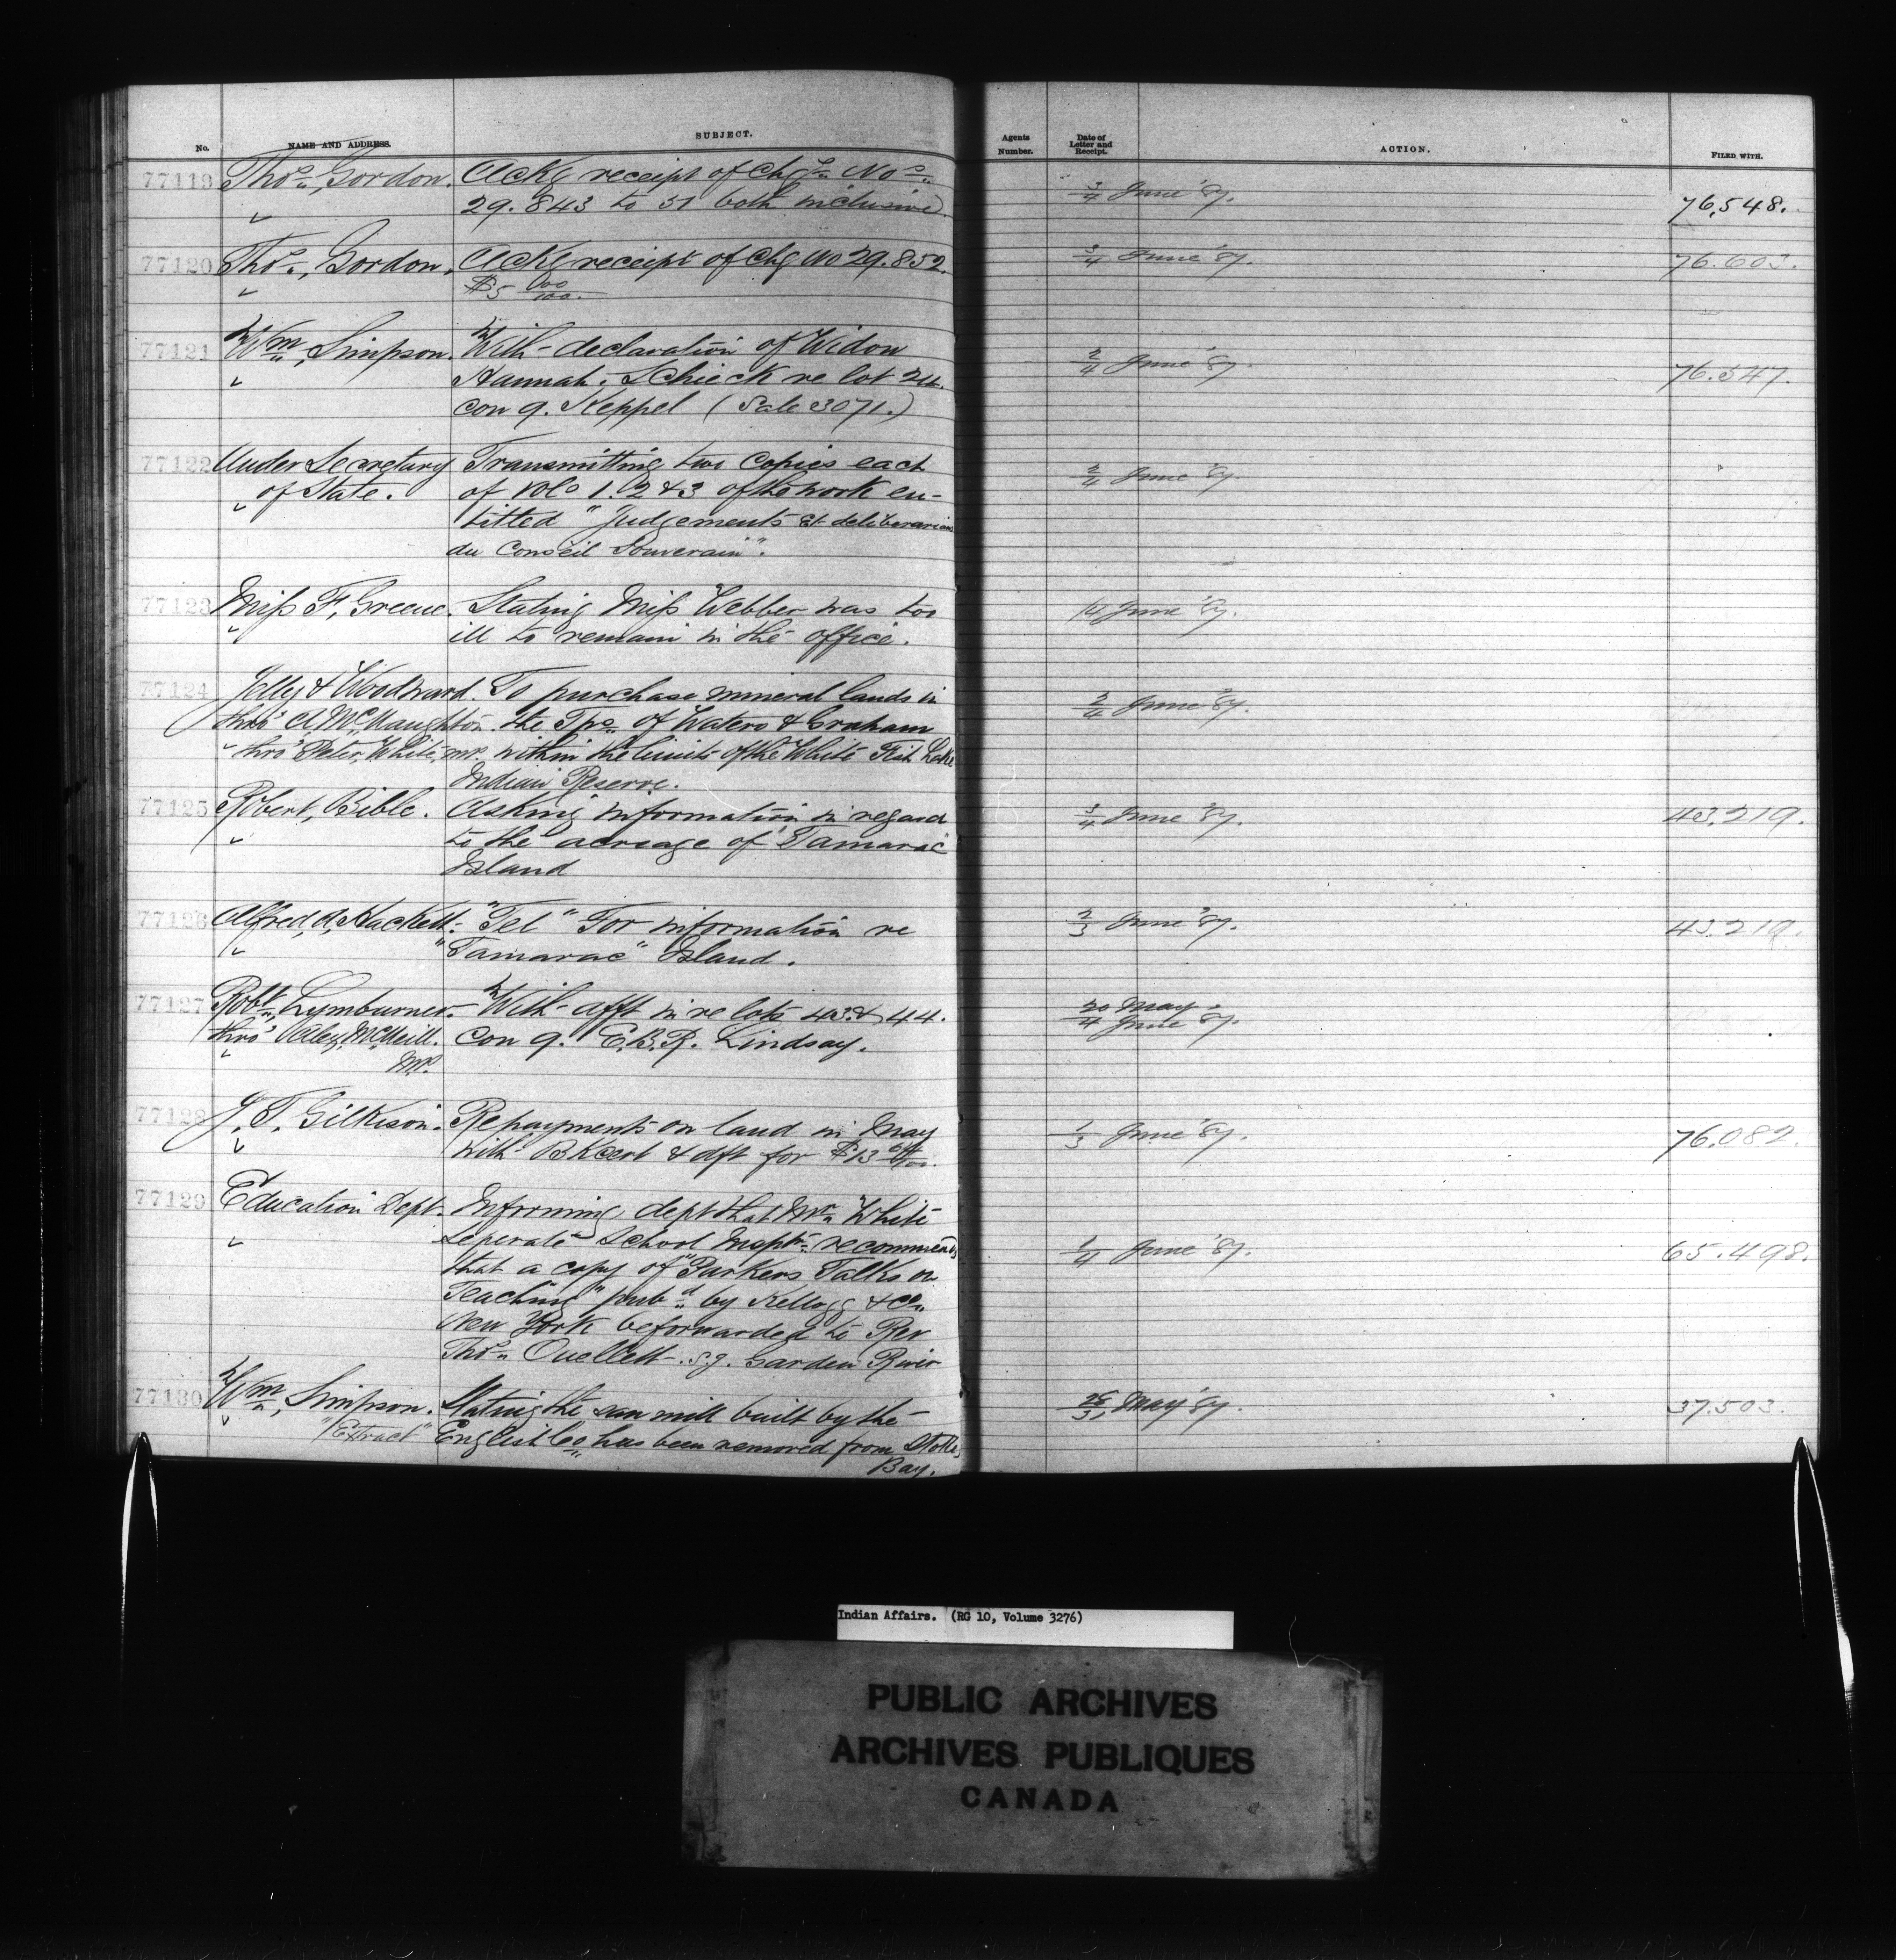 No.
NAME AND ADDRESS.
SUBJECT.
Agents Number.
Date of Letter and Receipt.
ACTION.
FILED WITH.
77119 Thos. Gordon. Ackg receipt of Chqs Nos
29.843 to 51 both inclusive. 3/4 June '87. 76,548.
77120 Thos. Gordon. Ackg receipt of Chq No 29.852. 3/4 June '87. 76.603.
$5 00/100.
77121 Wm. Simpson. With declaration of Widow
Hannah. Schieck re lot 24. 2/4 June '87. 76.547.
con 9. Keppel (Sale 3071.)
77122 Under Secretary Transmitting two copies each
of State. of Vols 1. 2 & 3 of the work en- 2/4 June '87.
titled "Judgements et deliberations
du Conseil Souverain".
77123 Miss F. Greene. Stating Miss Webber was too /4 June '87.
ill to remain in the office.
77124 Jolly & Woodward. To purchase mineral lands in
thro' A McNaughton. the Tps. of Waters & Graham 2/4 June '87.
thro' Peter White, MP. within the limits of the White Fish Lake
Indian Reserve.
77125 Robert, Bible. Asking information in regard 3/4 June '87. 43.219.
to the acreage of "Tamarac"
Island
77126 Alfred, A, Hackett. "Tel" For information re 2/3 June '87. 43.219.
"Tamarac" Island.
77127 Robt. Lymburner. With afft in re lots 43. & 44. 20 May
thro' Alex, McNeill. con 9. E.B.R. Lindsay. 4 June '87.
MP.
77128 J. T. Gilkison. Repayments on land in May 1/3 June '87. 76.082.
with BKcert & dft for $13
77129 Education Dept. Informing dept that Mr. White
Seperate School Inspts. recommends 1/4 June '87. 65.498.
that a copy of "Parkers Talks on
Teaching" pubd. by Kellogg & Co.
New York be forwarded to Rev
Thos. Ouellett. S.J. Garden River
77130 Wm, Simpson. Stating the saw mill built by the 26/31 May '87. 37.503.
"Extract" English Co. has been removed from Stokes
Bay.
Indian Affairs. (RG 10, Volume 3276)
PUBLIC ARCHIVES
ARCHIVES PUBLIQUES
CANADA